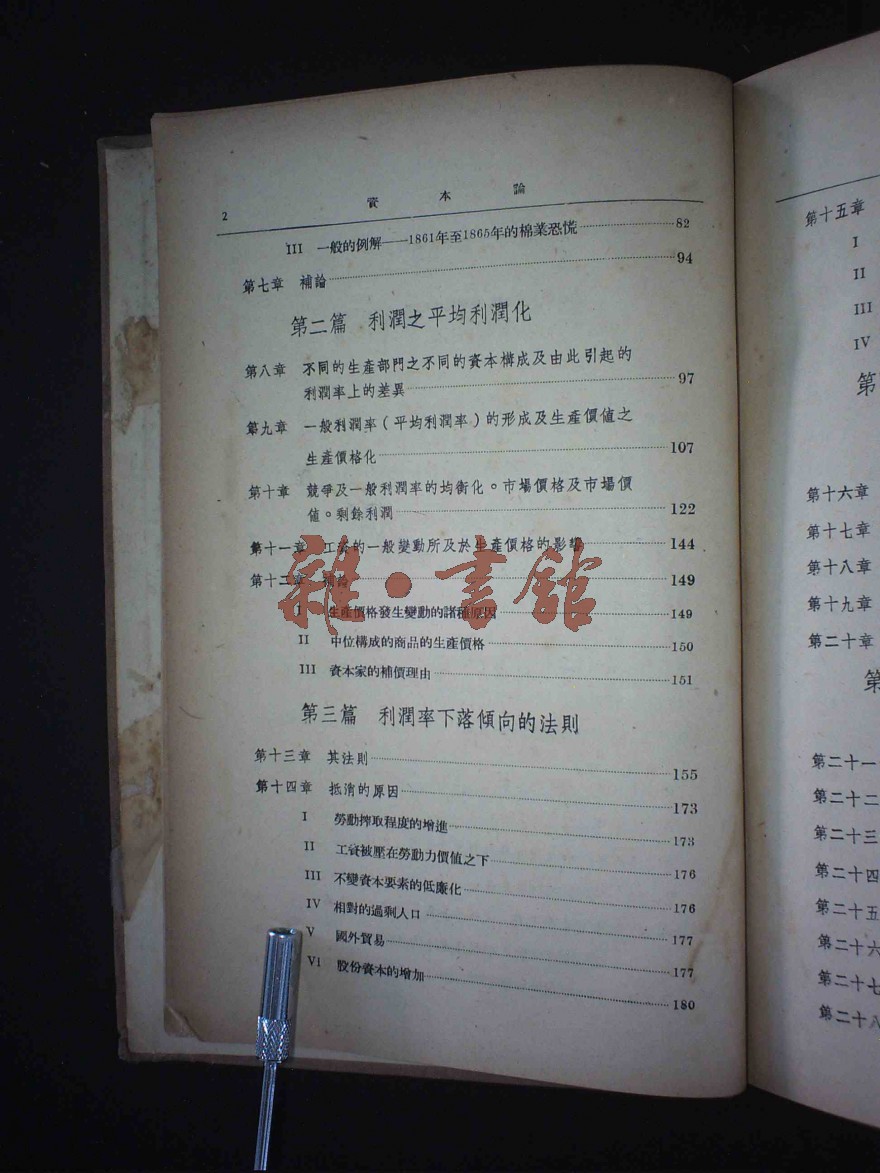 2 資本論
III 一般的例解——1861年至1865年的棉業恐慌 82
第七章 補論 94
第二篇 利潤之平均利潤化
第八章 不同的生產部門之不同的資本構成及由此引起的
利潤率上的差異 97
第九章 一般利潤率（平均利潤率）的形成及生產價值之
生產價格化 107
第十章 競爭及一般利潤率的均衡化。市場價格及市場價
值。剩餘利潤 122
第十一章 工資的一般變動所及於生產價格的影響 144
第十二章 補論 149
I 生產價格發生變動的諸種原因 149
II 中位構成的商品的生產價格 150
III 資本家的補價理由 151
第三篇 利潤率下落傾向的法則
第十三章 其法則 155
第十四章 抵消的原因 173
I 勞動搾取程度的增進 173
II 工資被壓在勞動力價值之下 176
III 不變資本要素的低廉化 176
IV 相對的過剩人口 177
V 國外貿易 177
VI 股份資本的增加 180
雜·書館
第十五章
I
II
III
IV
第
第十六章
第十七章
第十八章
第十九章
第二十章
第
第二十一
第二十二
第二十三
第二十四
第二十五
第二十六
第二十七
第二十八